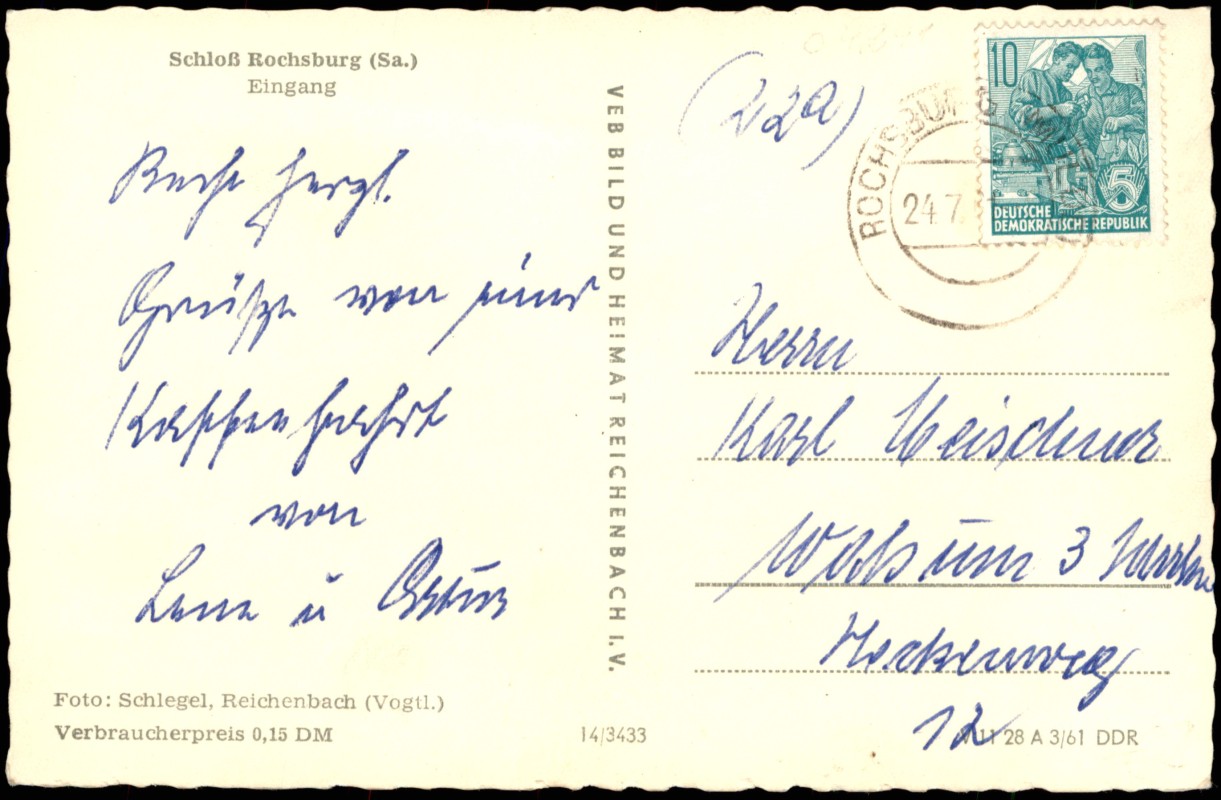 Schloß Rochsburg (Sa.)
Eingang
Recht herzl.
Grüße von einer
Kaffeefahrt
von
Lene u
Foto: Schlegel, Reichenbach (Vogtl.)
Verbraucherpreis 0,15 DM
VEB BILD UND HEIMAT REICHENBACH I.V.
14/3433
(22a)
ROCHSBURG
24.7
10
5
DEUTSCHE
DEMOKRATISCHE REPUBLIK
Herrn
Karl Meischner
Walsum 3
Heckenweg
12
28 A 3/61 DDR